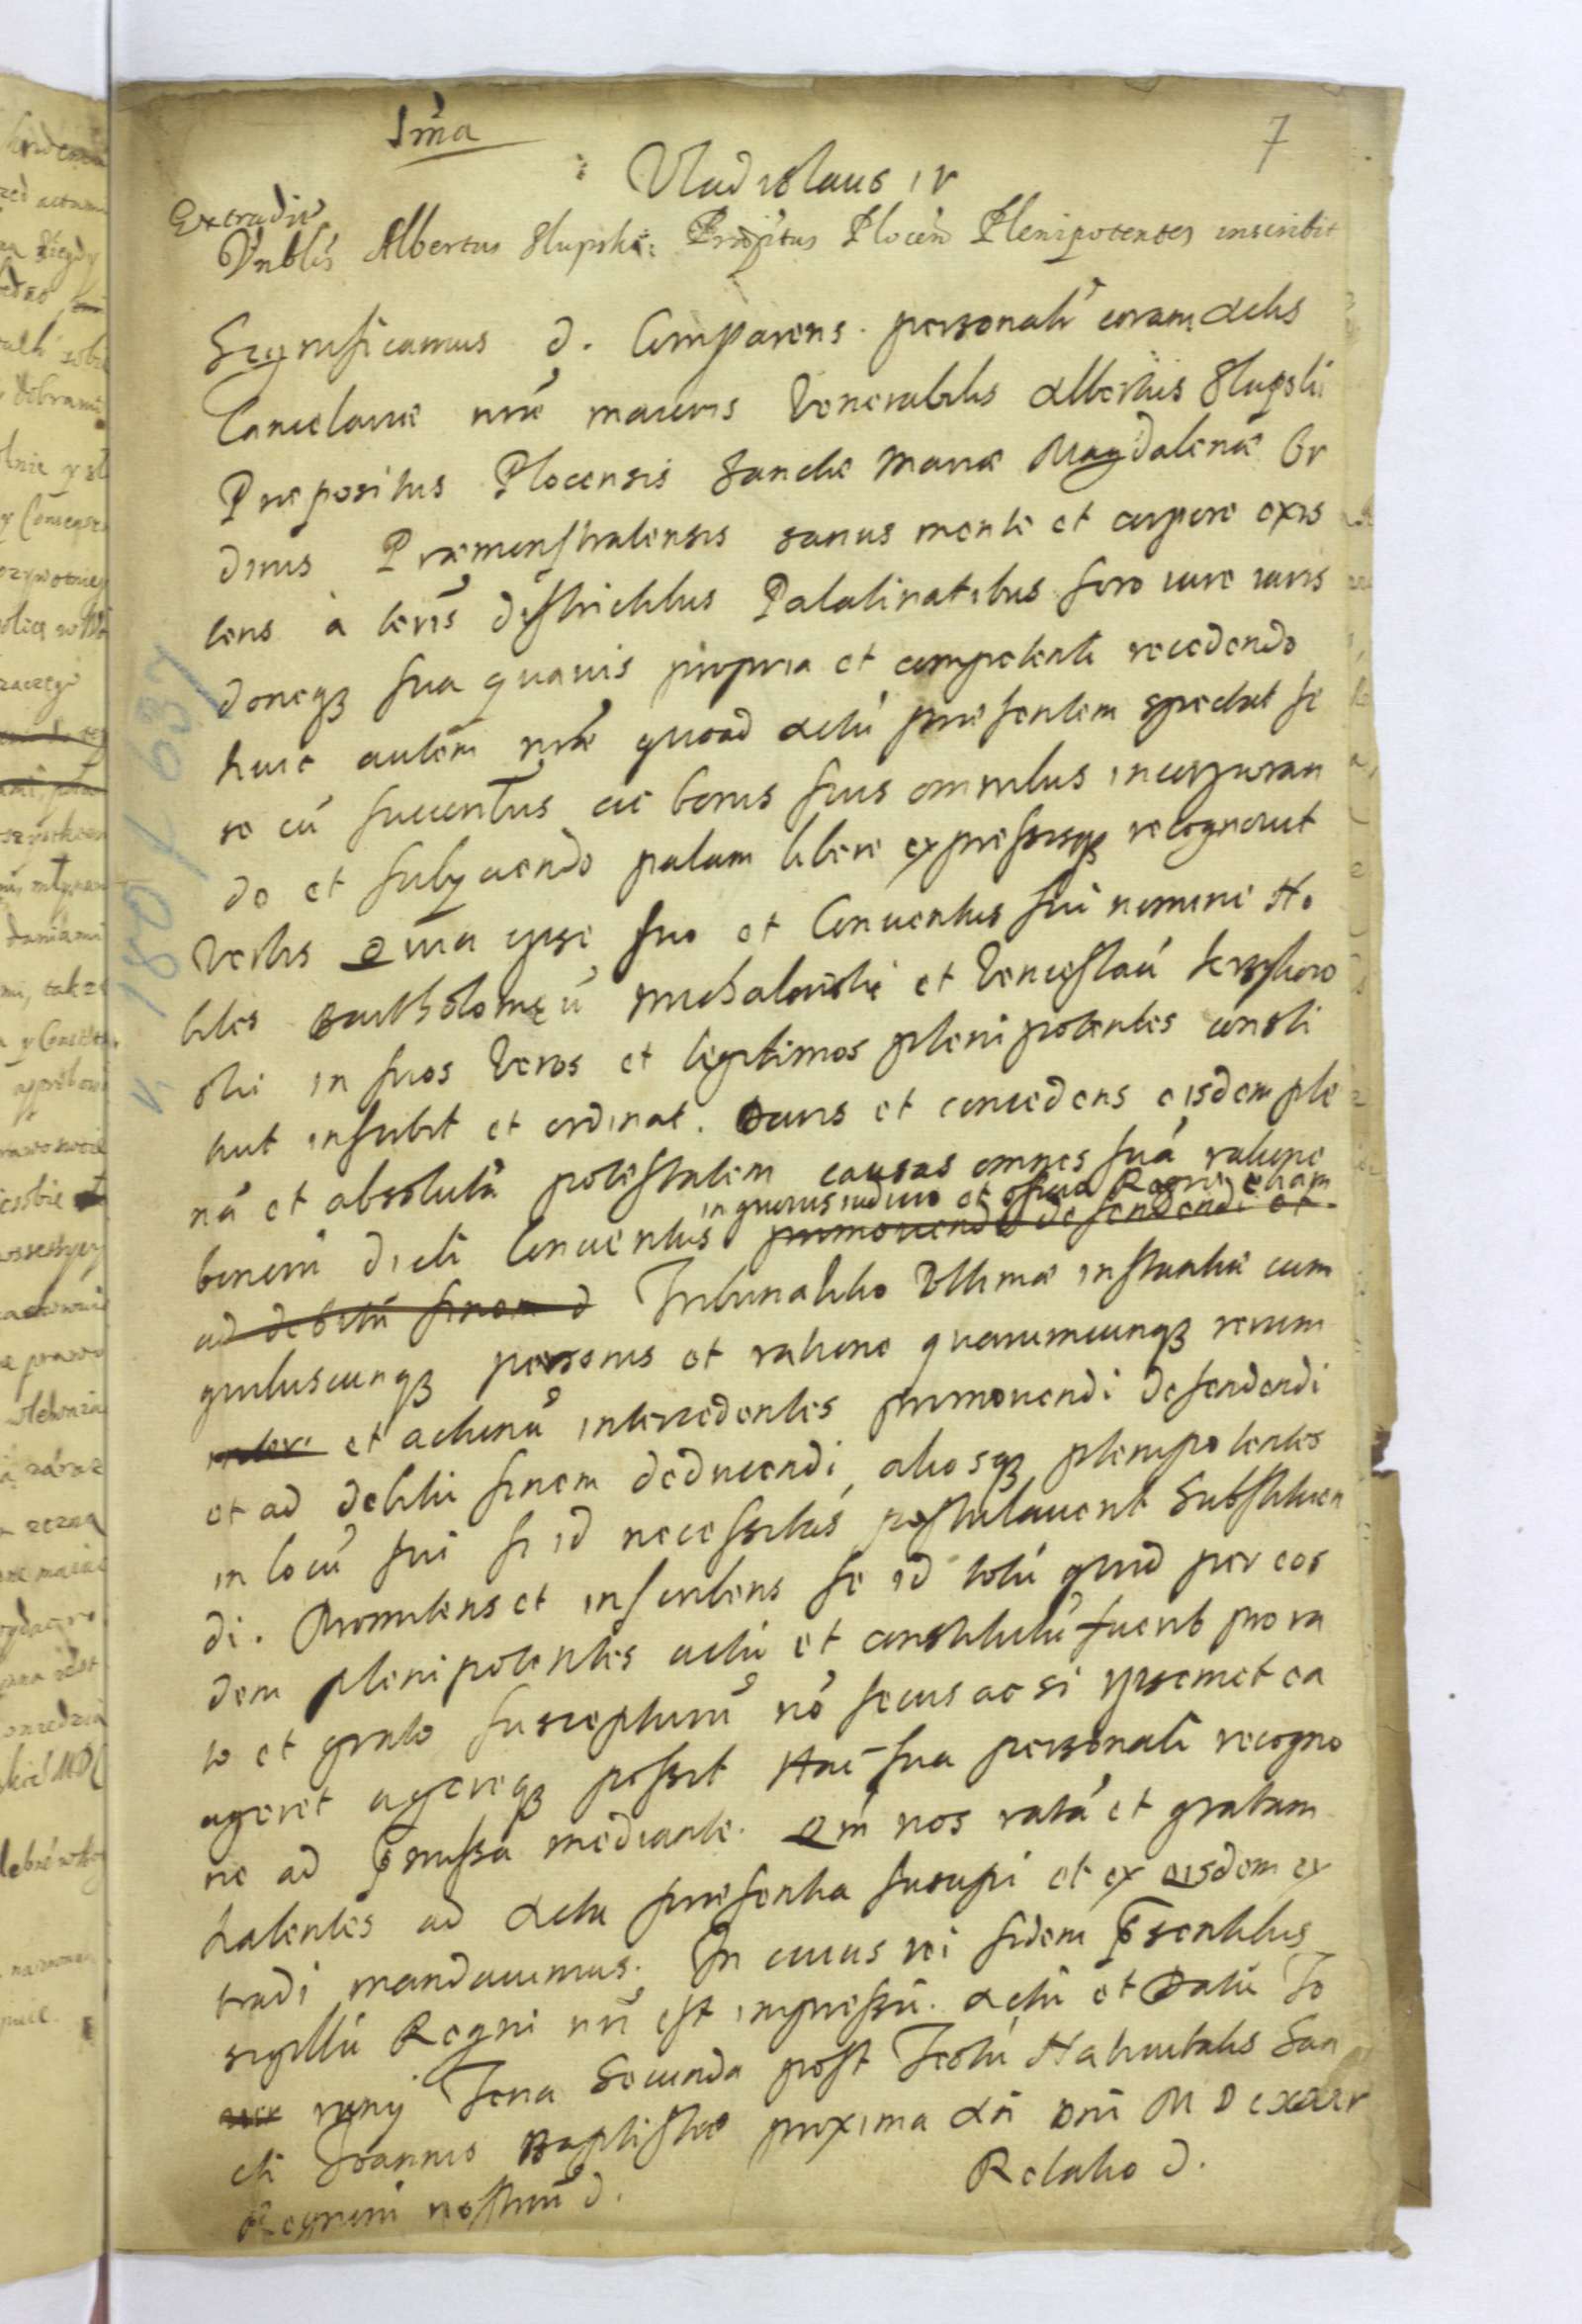 Sma
7
Vladislaus IV
Extradit
Vnblis Albertus Slupski Praepitus Plocen Plenipotentes inscribit
Significamus d. Comparens personalr coram Actis
Cancelariae nrae maioris Venerabilis Albertus Slupski
Praepositus Plocensis Sanctae Mariae Magdalenae Or
dinis Praemonstratensis sanus mente et corpore exis
tens à teris districtibus Palatinatibus foro iure iuris
doneqз sua quauis propria et competenti recedendo
huic autem nrae quoad Actu praesentem spectat se
se cu succentbus ac bonis suis omnibus incorporan
do et subijciendo palam libere expressisqз recognouit
Verbis Quia ipse suo et Conuentus sui nomine No
biles Bartholomeu Michalouski et Venceslau
ski in suos Veros et legitimos plenipotentes consti
tuit inscribit et ordinat. Dans et concedens eisdem ple
na et absoluta potestatem causas omnes sua ratione
in quouis iudicio et officio Regni etiam
bonorum dicti Conuentus promouendi defendendi et
ad debitu finem d Tribunalitio Vltimae instantiae cum
quibuscunqз personis et ratione quarumcunqз rerum
et actionu intercedentes promouendi defendendi
et ad debitu finem deducendi aliosqз plenipotentes
in locu sui si id necessitas postulauerit substituen
di. Promitens et inscribens se id totu quid per eos
dem plenipotentes actu et constitutu fuerit pro ra
to et grato suscepturu no secus ac si ipsemet ea
ageret agereqз possit Hac sua personali recogno
ne ad pmissa mediante. Qm nos rata et gratam
habentes ad Acta praesentia suscipi et ex eisdem ex
tradi mandauimus. In cuius rei fidem psentibus
sigillu Regni nri est impressu. Actu et Datu
Feria Secunda post Festu Natiuitatis San
cti Joannis Baptistae proxima An Dni
Regnorum nostroru d.
Relatio d.
V. 180 f. 637